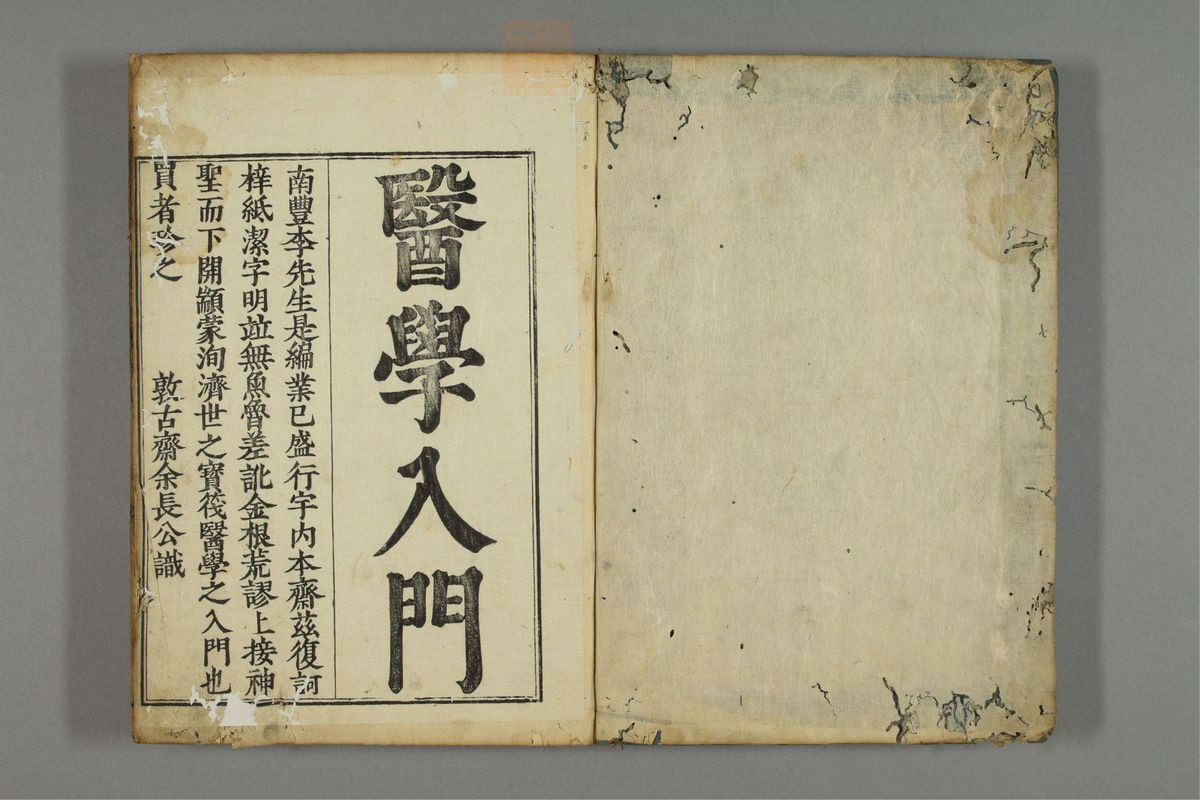 醫學入門
南豐李先生是編業已盛行宇內本齋茲復訶
梓紙潔字明竝無魚魯差訛金根荒謬上接神
聖而下開顓蒙洵濟世之寶筏醫學之入門也
買者 之
敦古齋余長公識